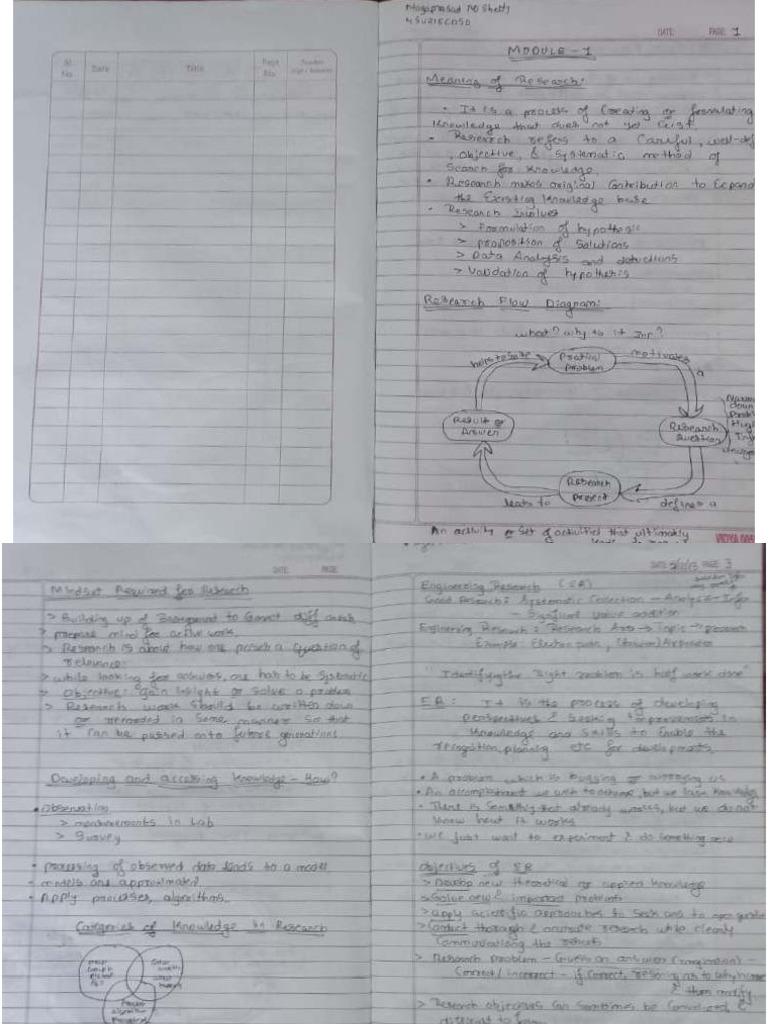 Sl. No.
Date
Title
Page No.
MODULE - 1
DATE: PAGE: 1
Meaning of Research:
• It is a process of Creating or formulating
Knowledge that does not yet Exist.
• Research refers to a Careful, well-def
, objective, & systematic method of
Search for Knowledge.
• Research makes original Contribution to Expand
the Existing Knowledge base
• Research Involves
> Formulation of hypothesis
> proposition of Solutions
> Data Analysis and deductions
> Validation of hypothesis
Research Flow Diagram:
what? why is it Imp?
helps to solve
Practical Problem
motivates a
Result or Answer
Research Question
Research present
leads to
defines a
An activity or set of activities that ultimately
DATE: PAGE:
Mindset Required for Research
> Building up of Background to Connect diff
> prepare mind for active work.
> Research is about how one poses a question of
relevance.
> while looking for answers, one has to be Systematic
> Objective: gain insight or solve a problem
> Research work should be written down
or recorded in Some manner So that
it can be passed onto future generations
Developing and accessing Knowledge - How?
• Observation
> measurements in Lab
> Survey
• processing of observed data leads to a model
• models are approximated
• Apply processes, algorithms.
Categories of Knowledge in Research
PAGE: 3
Engineering Research (ER)
Good Research: Systematic Collection - Analysis - Info
- Significant value addition
Engineering Research: Research Area → Topic →
Example:
"Identifying the Right problem is half work done"
ER: It is the process of developing
perspectives & Seeking Improvements in
Knowledge and Skills to Enable the
recognition, planning etc for developments.
• A problem which is bugging or worrying us
• An accomplishment we wish to achieve, but we lack knowledge
• There is Something that already works, but we do not
know how it works
• We just want to experiment & do something new
Objectives of ER
> Develop new theoretical or applied Knowledge
> Solve new & important problems
> apply scientific approaches to Seek
> Conduct thorough & accurate research while clearly
Communicating the results
> Research problem - Given an answer
Correct / Incorrect - if Correct, reasoning as to why
& then modify
> Research objectives Can Sometimes be